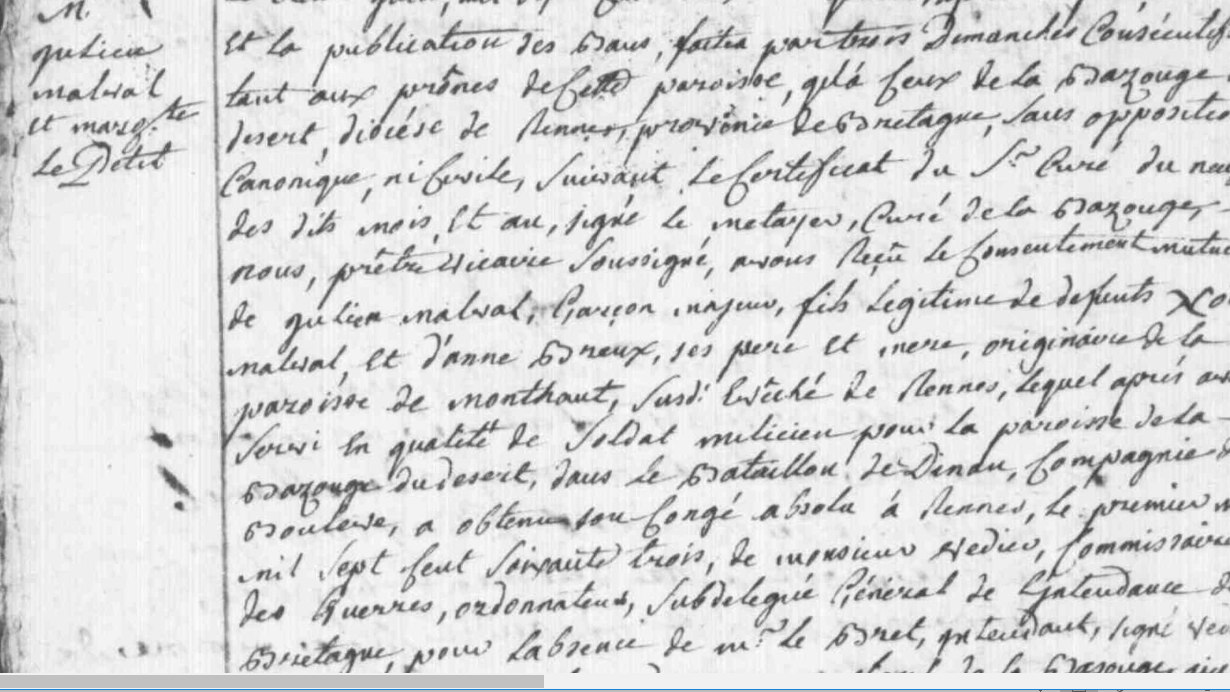 M.
julien
malval
et marg.te
Le Petit
Et la publication des Bans, faitte par trois Dimanches Consécutifs
tant aux prônes de Cette paroisse, qu'à Ceux de la Bazouge
desert, diocése de Rennes, province de Bretagne, sans oppositio
Canonique, ni Civile, suivant Le Certificat du S.r Curé du neu
des dits mois, Et an, signé Le metayer, Curé de la Bazouge,
nous, prêtre Vicaire soussigné, avons Reçu Le Consentement mutu
de julien malval, Garçon majeur, fils Legitime de defunts
malval, Et d'anne Breux, ses pere Et mere, originaire de La
paroisse de monthaut, susd: Evêché de Rennes, Lequel aprés av
servi En qualité de Soldat milicien pour La paroisse de La
Bazouge du desert, dans Le Bataillon de Dinan, Compagnie
Boulere, a obtenu son Congé absolu à Rennes, Le premier
mil Sept Cent Soixante trois, de monsieur Vedier, Commissaire
des Guerres, ordonnateur, Subdelegué Général de L'intendance
Bretagne, pour L'absence de m.r Le Bret, intendant, signé Ve
de La Bazouge